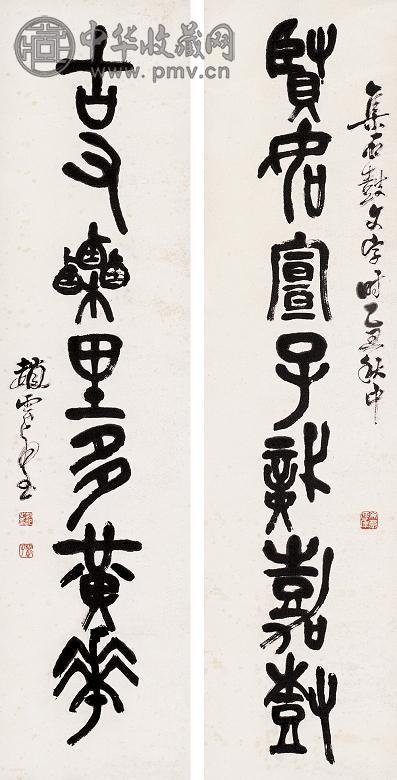 中华收藏网
www.pmv.cn
集石鼓文字时乙丑秋中
賢如宣子識嘉樹
古又櫟里多黃華
趙雲壑